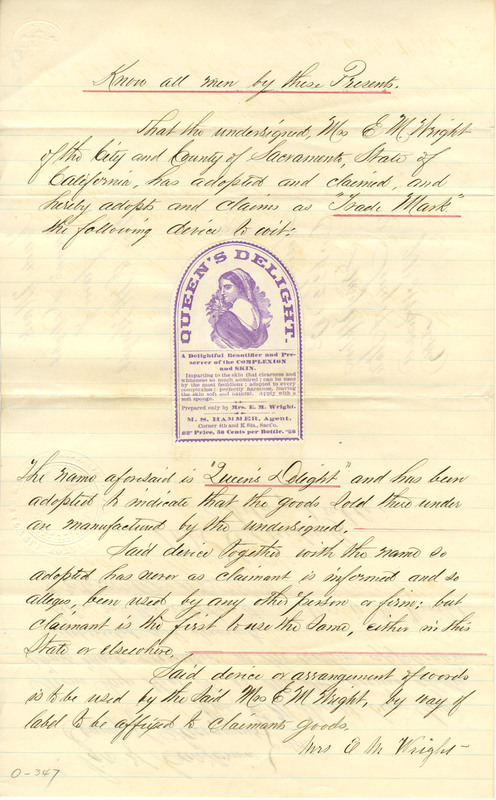 Know all men by these Presents.
That the undersigned, Mrs E M Wright
of the City and County of Sacramento, State of
California, has adopted and claimed, and
hereby adopts and claims as "Trade Mark"
the following device to wit:
QUEEN'S DELIGHT.
A Delightful Beautifier and Pre-
server of the COMPLEXION
and SKIN.
Imparting to the skin that clearness and
whiteness so much admired; can be used
by the most fastidious; adapted to every
complexion; perfectly harmless, leaving
the skin soft and natural. Apply with a
soft sponge.
Prepared only by Mrs. E. M. Wright.
M. S. HAMMER, Agent,
Corner 4th and K Sts., Sac'to.
Price, 50 Cents per Bottle.
The name aforesaid is "Queen's Delight" and has been
adopted to indicate that the goods sold there under
are manufactured by the undersigned.
Said device together with the name so
adopted has never as claimant is informed and so
alleges, been used by any other person or firm; but
claimant is the first to use the same, either in this
State or elsewhere.
Said device or arrangement of words
is to be used by the said Mrs E M Wright, by way of
label to be affixed to claimants goods.
Mrs E M Wright
0-347